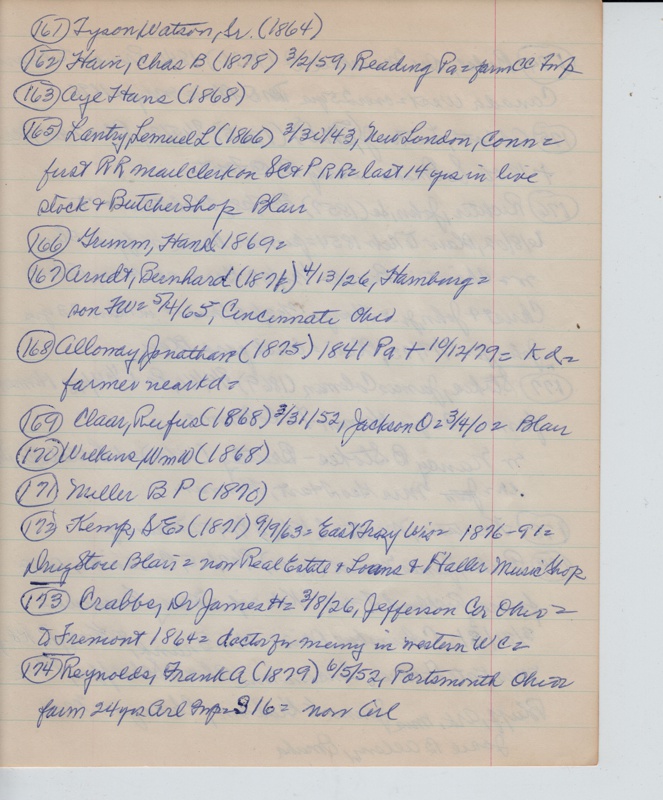 (161) Tyson, Watson, Sr. (1864)
(162) Hain, Chas B (1878) 3/2/59, Reading Pa = farm CC Twp
(163) Aye Hans (1868)
(165) Lantry, Lemuel L (1866) 3/30/43, New London, Conn =
first RR mail clerk on SC & P RR = last 14 yrs in live
stock & Butcher Shop Blair
(166) Grimm, Hans 1869 =
(167) Arndt, Bernhard 4/13/26, Hamburg =
son FW = 5/4/65, Cincinnati Ohio
(168) Alloway, Jonathan (1875) 1841 Pa + 10/12/79 = Kd =
farmer near Kd =
(169) Claar, Rufus (1868) 3/31/52, Jackson O = 3/4/0 = Blair
(170) Wilkins, Wm W (1868)
(171) Miller B P (1870)
(172) Kemp, S E = (1871) 9/9/63 = East Troy Wis = 1876-91 =
Drug Store Blair = now Real Estate & Loans & Haller Music Shop
(173) Crabbe, Dr James H = 3/8/26, Jefferson Co, Ohio =
to Fremont 1864 = doctor for many in western WC =
(174) Reynolds, Frank A (1879) 6/5/52, Portsmouth Ohio =
farm 24 yrs Arl Twp = S16 = now Arl